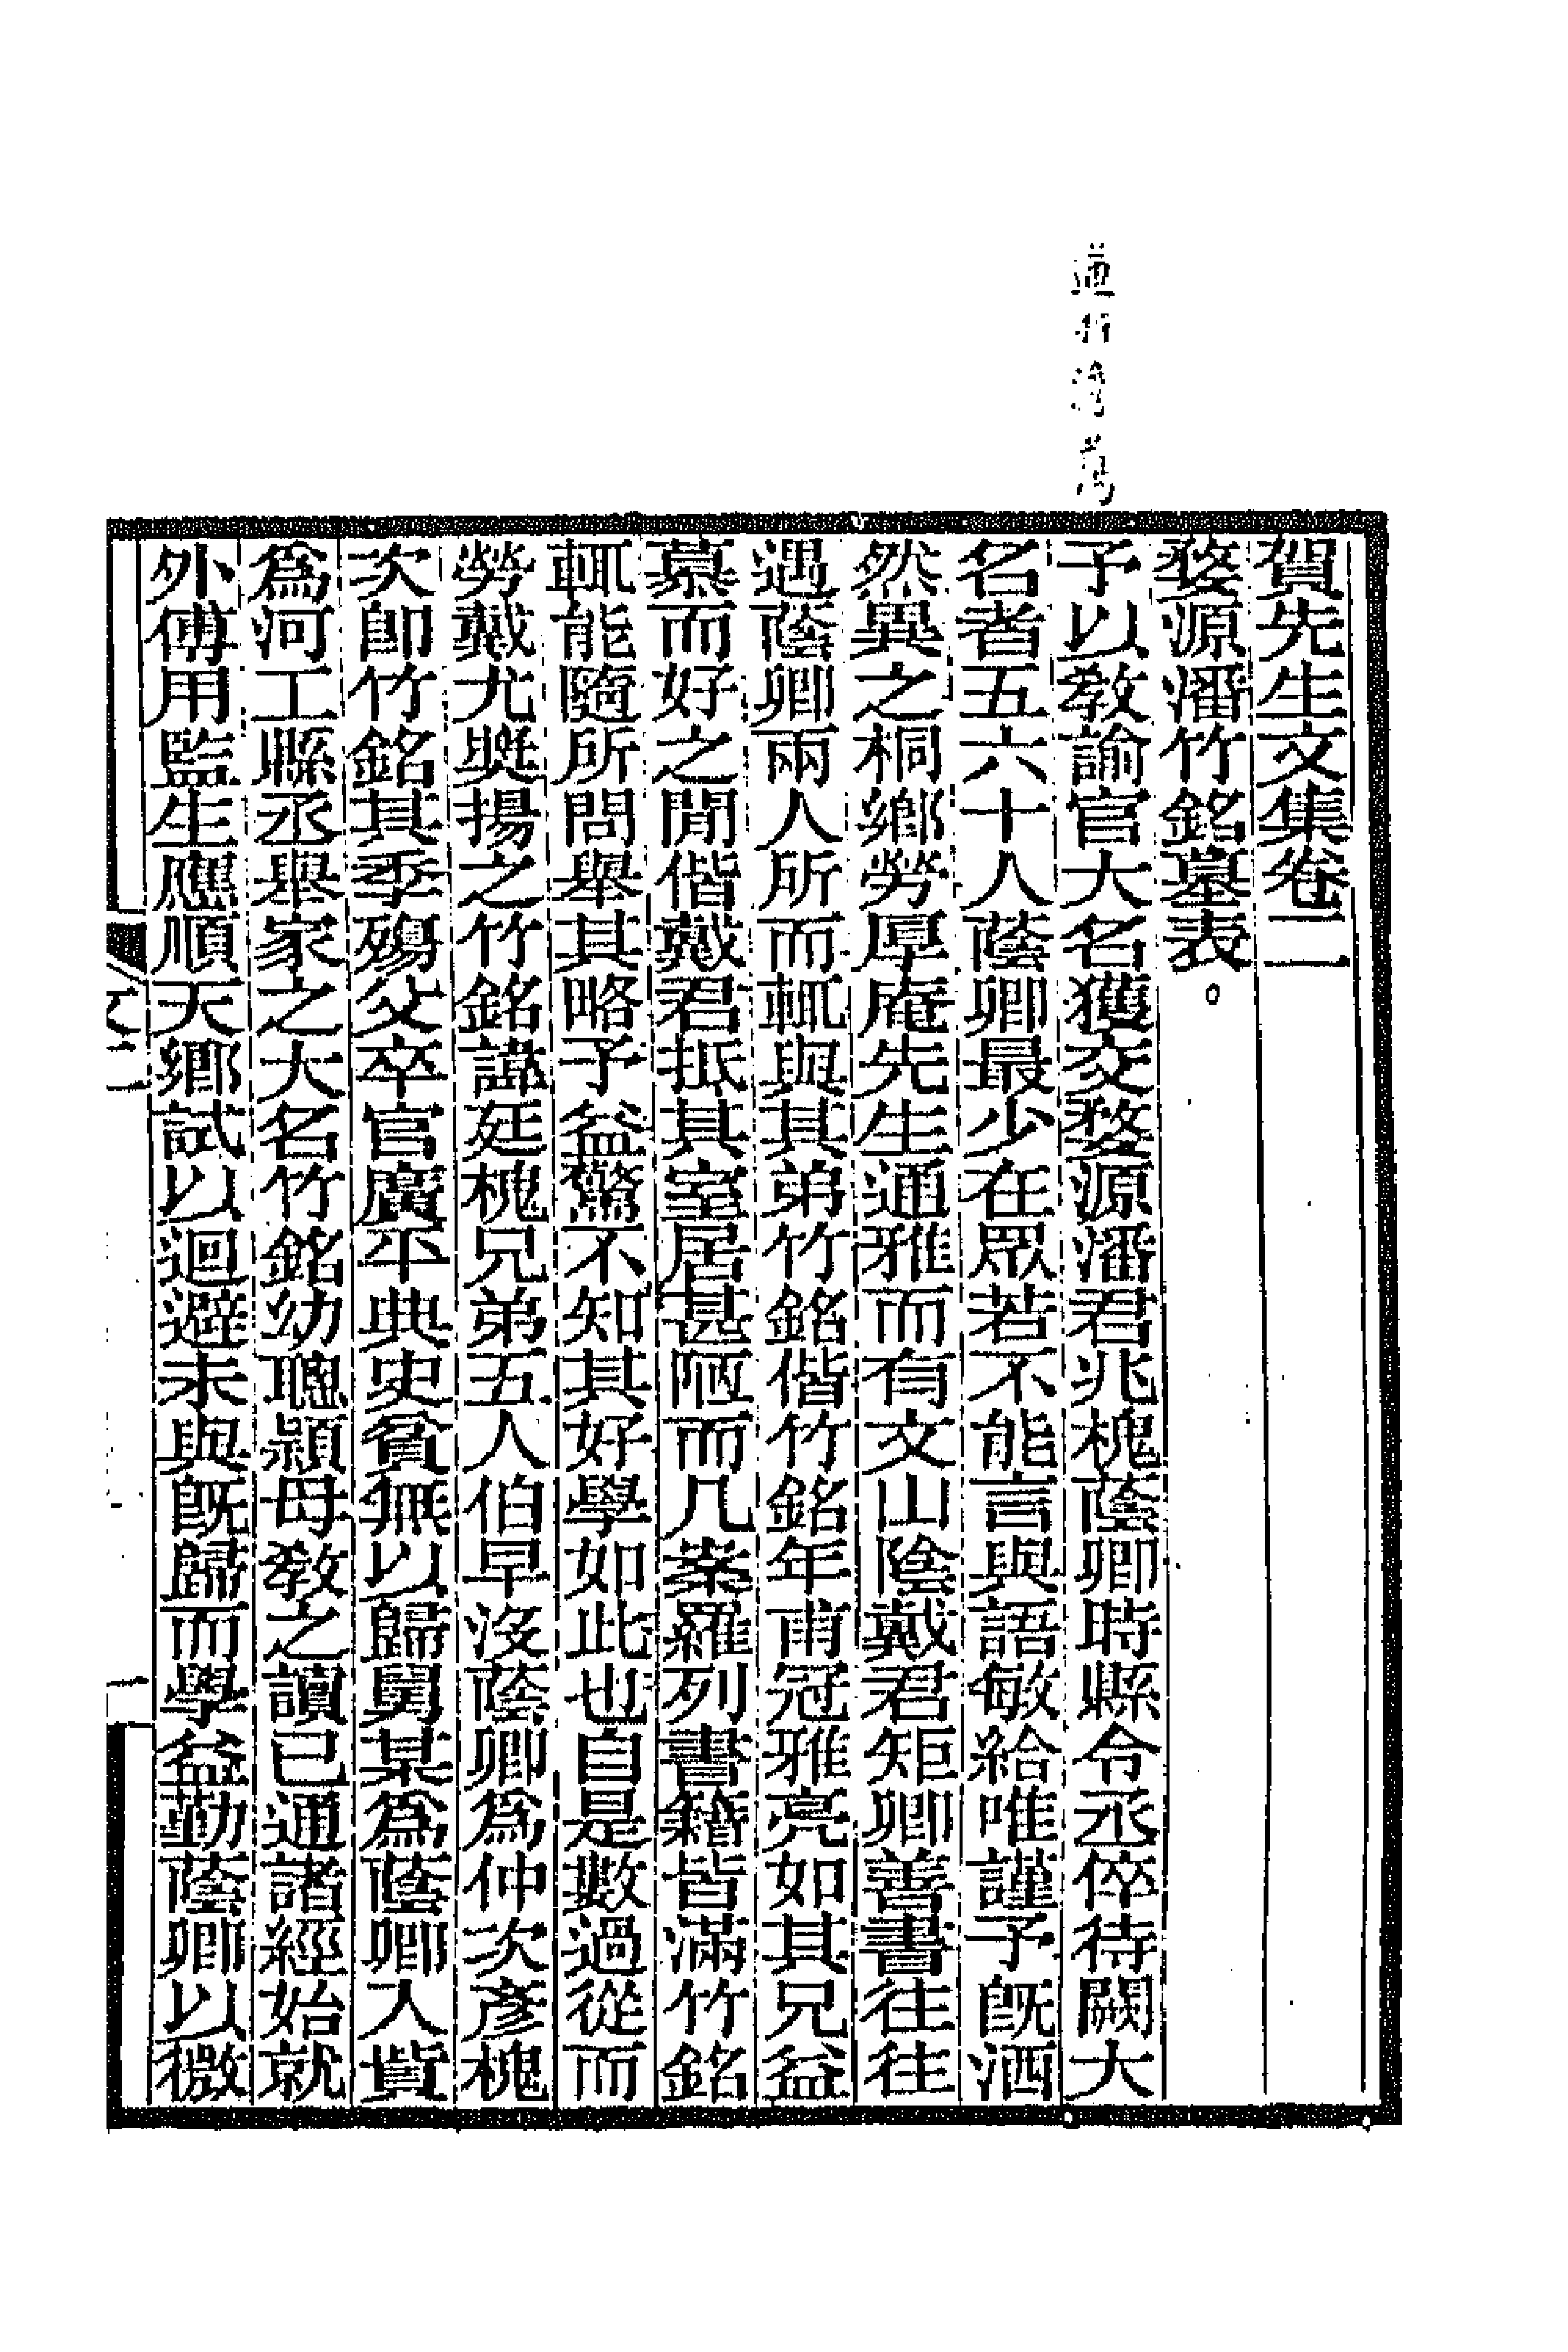 賀先生文集卷二
婺源潘竹銘墓表
予以教諭官大名獲交婺源潘君兆槐蔭卿時縣令丞倅待闕大
名者五六十人蔭卿最少在眾若不能言與語敏給唯謹予旣洒
然異之桐鄉勞厚庵先生通雅而有文山陰戴君矩卿善書往往
遇蔭卿兩人所而輒與其弟竹銘偕竹銘年甫冠雅亮如其兄益
慕而好之閒偕戴君抵其室居甚陋而几案羅列書籍皆滿竹銘
輒能隨所問舉其略予益驚不知其好學如此也自是數過從而
勞戴尤奬揚之竹銘諱廷槐兄弟五人伯早沒蔭卿爲仲次彥槐
次卽竹銘其季殤父卒官廣平典史貧無以歸舅某爲蔭卿入貲
爲河工縣丞舉家之大名竹銘幼聰穎母教之讀已通諸經始就
外傅用監生應順天鄉試以迴避未與旣歸而學益勤蔭卿以微
文二
一